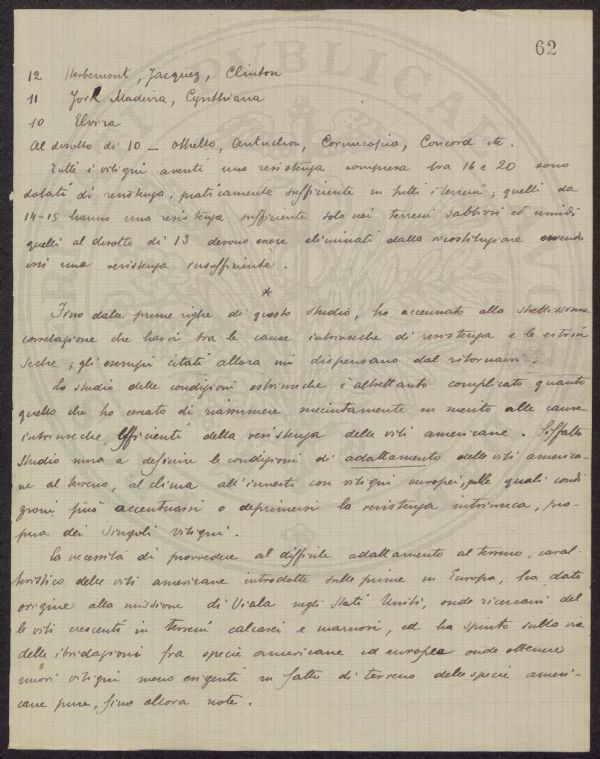 62
12 Herbemont, Jacquez, Clinton
11 York Madeira, Cynthiana
10 Elvira
Al disotto di 10 — Othello, Cornucopia, Concord etc.
Tutti i vitigni aventi una resistenza compresa tra 16 e 20 sono
dotati di resistenza, praticamente sufficiente in tutti i terreni; quelli da
14-15 hanno una resistenza sufficiente solo nei terreni sabbiosi ed umidi
quelli al disotto di 13 devono essere eliminati dalla ricostituzione avendo
essi una resistenza insufficiente.
*
Fino dalle prime righe di questo studio, ho accennato alla strettissima
correlazione che havvi tra le cause intrinseche di resistenza e le estrin
seche; gli esempi citati allora mi dispensano dal ritornarvi.
Lo studio delle condizioni estrinseche è altrettanto complicato quanto
quello che ho cercato di riassumere succintamente in merito alle cause
intrinseche, efficienti della resistenza delle viti americane. Siffatto
studio mira a definire le condizioni di adattamento delle viti america-
ne al terreno, al clima all'innesto con vitigni europei, nelle quali condi
zioni può accentuarsi o deprimersi la resistenza intrinseca, pro-
pria dei singoli vitigni.
La necessità di provvedere al difficile adattamento al terreno, carat-
teristico delle viti americane introdotte sulle prime in Europa, ha dato
origine alla missione di Viala negli Stati Uniti, onde ricercarvi del
le viti crescenti in terreni calcarei e marnosi, ed ha spinto sulla via
delle ibridazioni fra specie americane ed europea onde ottenere
nuovi vitigni meno esigenti in fatto di terreno delle specie ameri-
cane pure, fino allora note.